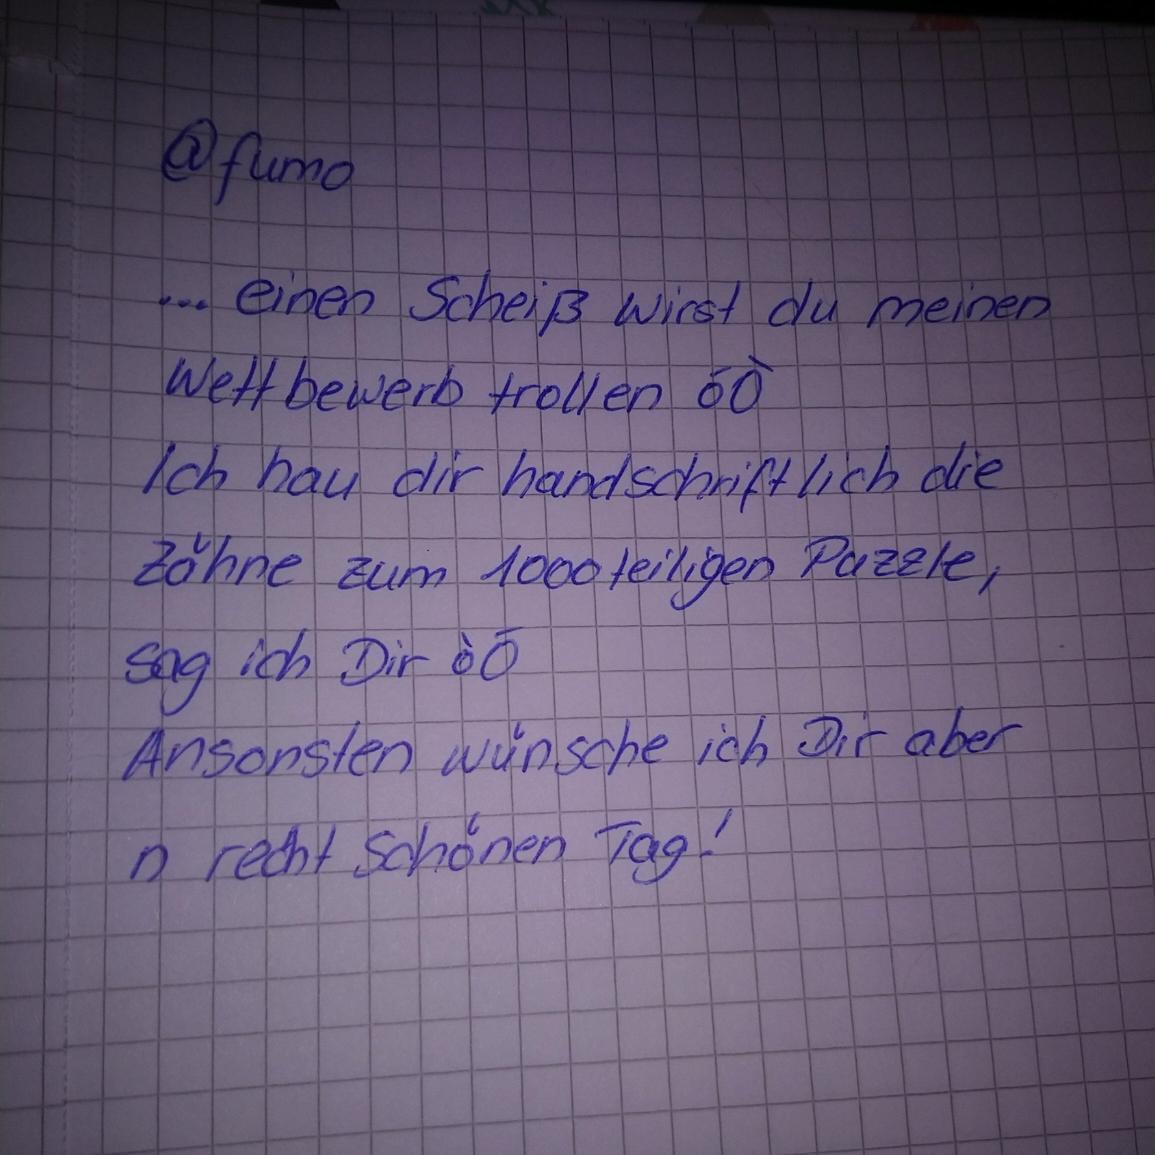 @fumo
... einen Scheiß wirst du meinen
Wettbewerb trollen óÒ
Ich hau dir handschriftlich die
Zähne zum 1000teiligen Puzzle,
sag ich Dir òÓ
Ansonsten wünsche ich Dir aber
n recht schönen Tag!